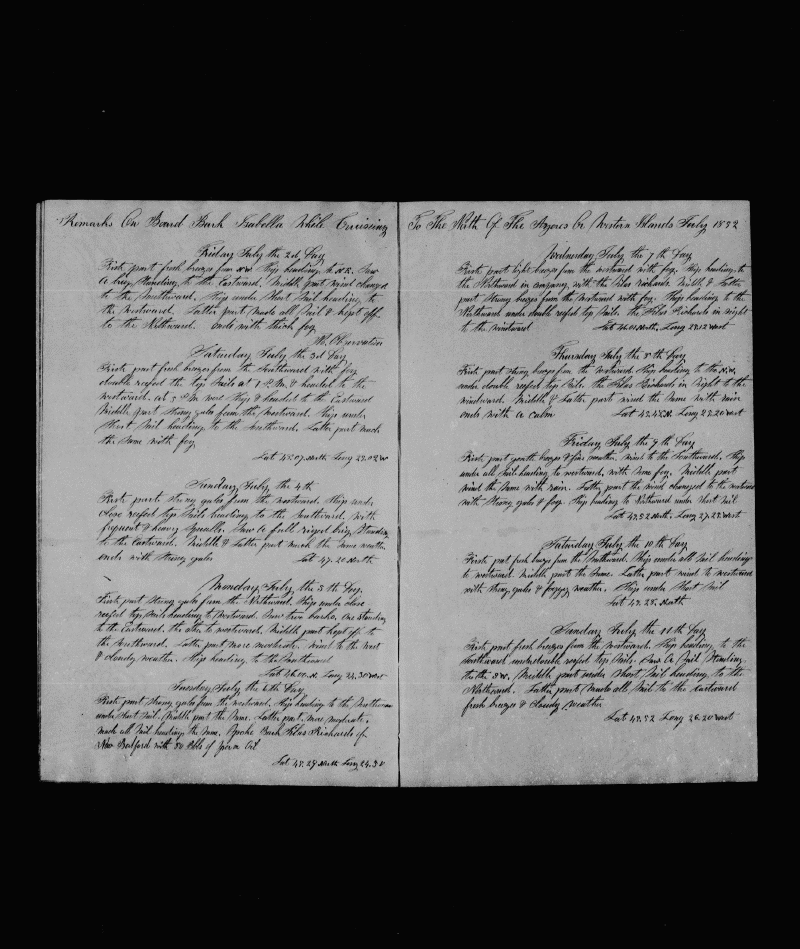 Remarks On Board Bark Isabella While Cruising
Friday July the 2d Day
First part fresh breeze from NW Ship heading to N.E. Saw
A brig Standing to the Eastward. Middle part wind changed
to the Southward. Ship under Short Sail heading to
the Westward. Latter part made all Sail & kept off
to the Northward. ends with thick fog
No Observation
Saturday July the 3d Day
First part fresh breezes from the Southward with fog
double reefed the top Sails at 1 P.M. & headed to the
westward. at 5 P.M. wore Ship & headed to the Eastward
Middle part Strong gale from the Westward. Ship under
Short Sail heading to the Southward. Latter part much
the Same with fog
Lat 47.07 North Long 23.02 W
Sunday July the 4th
First part Strong gales from the westward. Ship under
close reefed top Sails heading to the Southward. with
frequent & heavy Squalls. Saw A full riged brig Standing
to the Eastward. Middle & Latter part much the Same weather
ends with Strong gales Lat 47.20 North
Monday July the 5th Day
First part Strong gales from the Northward. Ship under close
reefed top Sails heading to Westward. Saw two barks, one Standing
to the Eastward the other to westward. Middle part kept off to
the Southward. Latter part more moderate. wind to the West
& cloudy weather. Ship heading to the Southward
Lat 46.00 N. Long 24.30 West
Tuesday July the 6th Day
First part Strong gales from the westward. Ship heading to the Southward
under Short Sail. Middle part the Same. Latter part more moderate.
made all Sail heading the Same. Spoke Bark Silas Richards of
New Bedford with 80 bbls of Sperm Oil
Lat 45.29 North Long 24.30
To The North Of The Azores Or Western Islands July 1852
Wednesday July the 7th Day
First part light breeze from the westward with fog. Ship heading to
the Northward in company with the Silas Richards. Middle & Latter
part Strong breeze from the Westward with fog. Ship heading to the
Northward under double reefed top Sails. the Silas Richards in Sight
to the windward Lat 46.01 North, Long 23.12 West
Thursday July the 8th Day
First part Strong breezes from the westward Ship heading to the N.W.
under double reefed top Sails. the Silas Richards in Sight to the
windward. Middle & Latter parts wind the Same with rain
ends with A calm Lat 45.45 N. Long 23.20 West
Friday July the 9th Day
First part gentle breeze & fair weather. wind to the Southward. Ship
under all Sail heading to westward, with Some fog. Middle part
wind the Same with rain. Latter part the wind changed to the westward
with Strong gales & fog. Ship heading to Northward under Short Sail
Lat 45.52 North. Long 27.28 West
Saturday July the 10th Day
First part fresh breeze from the Southward. Ship under all Sail heading
to westward. Middle part the Same. Latter part wind to westward
with Strong gales & foggy weather. Ship under Short Sail
Lat 45.28 North
Sunday July the 11th Day
First part fresh breezes from the westward. Ship heading to the
Southward under double reefed top Sails. Saw A Sail Standing
to the SW. Middle part under Short Sail heading to the
Northward. Latter part made all Sail to the Eastward
fresh breeze & cloudy weather
Lat 45.52 Long 26.20 West